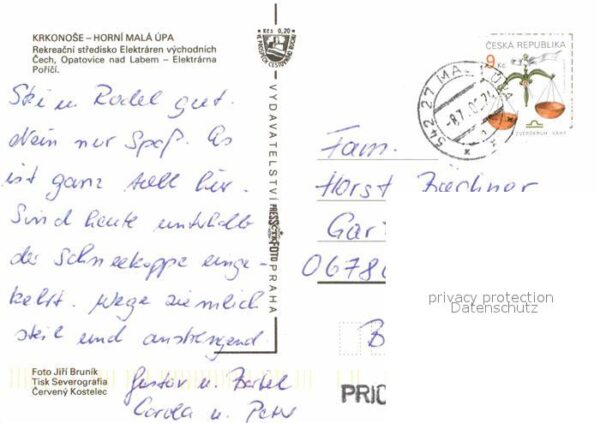 KRKONOŠE – HORNÍ MALÁ ÚPA
Rekreační středisko Elektráren východních
Čech, Opatovice nad Labem – Elektrárna
Poříčí.
Kčs 0,20
VE PROSPĚCH CESTOVNÍHO RUCHU
Ski u. Rodel gut.
Nein nur Spaß. Es
ist ganz toll hier.
Sind heute unterhalb
der Schneekoppe einge-
kehrt. Wege ziemlich
steil und anstrengend.
Gustav u. Bärbel
Carola u. Peter
Foto Jiří Bruník
Tisk Severografia
Červený Kostelec
VYDAVATELSTVÍ PRESSFOTO PRAHA
ČESKÁ REPUBLIKA
9 Kč
ZVĚROKRUH - VÁHY
542 27 MALÁ ÚPA
Fam.
Horst
Gar
0678
B
PRIO
privacy protection
Datenschutz